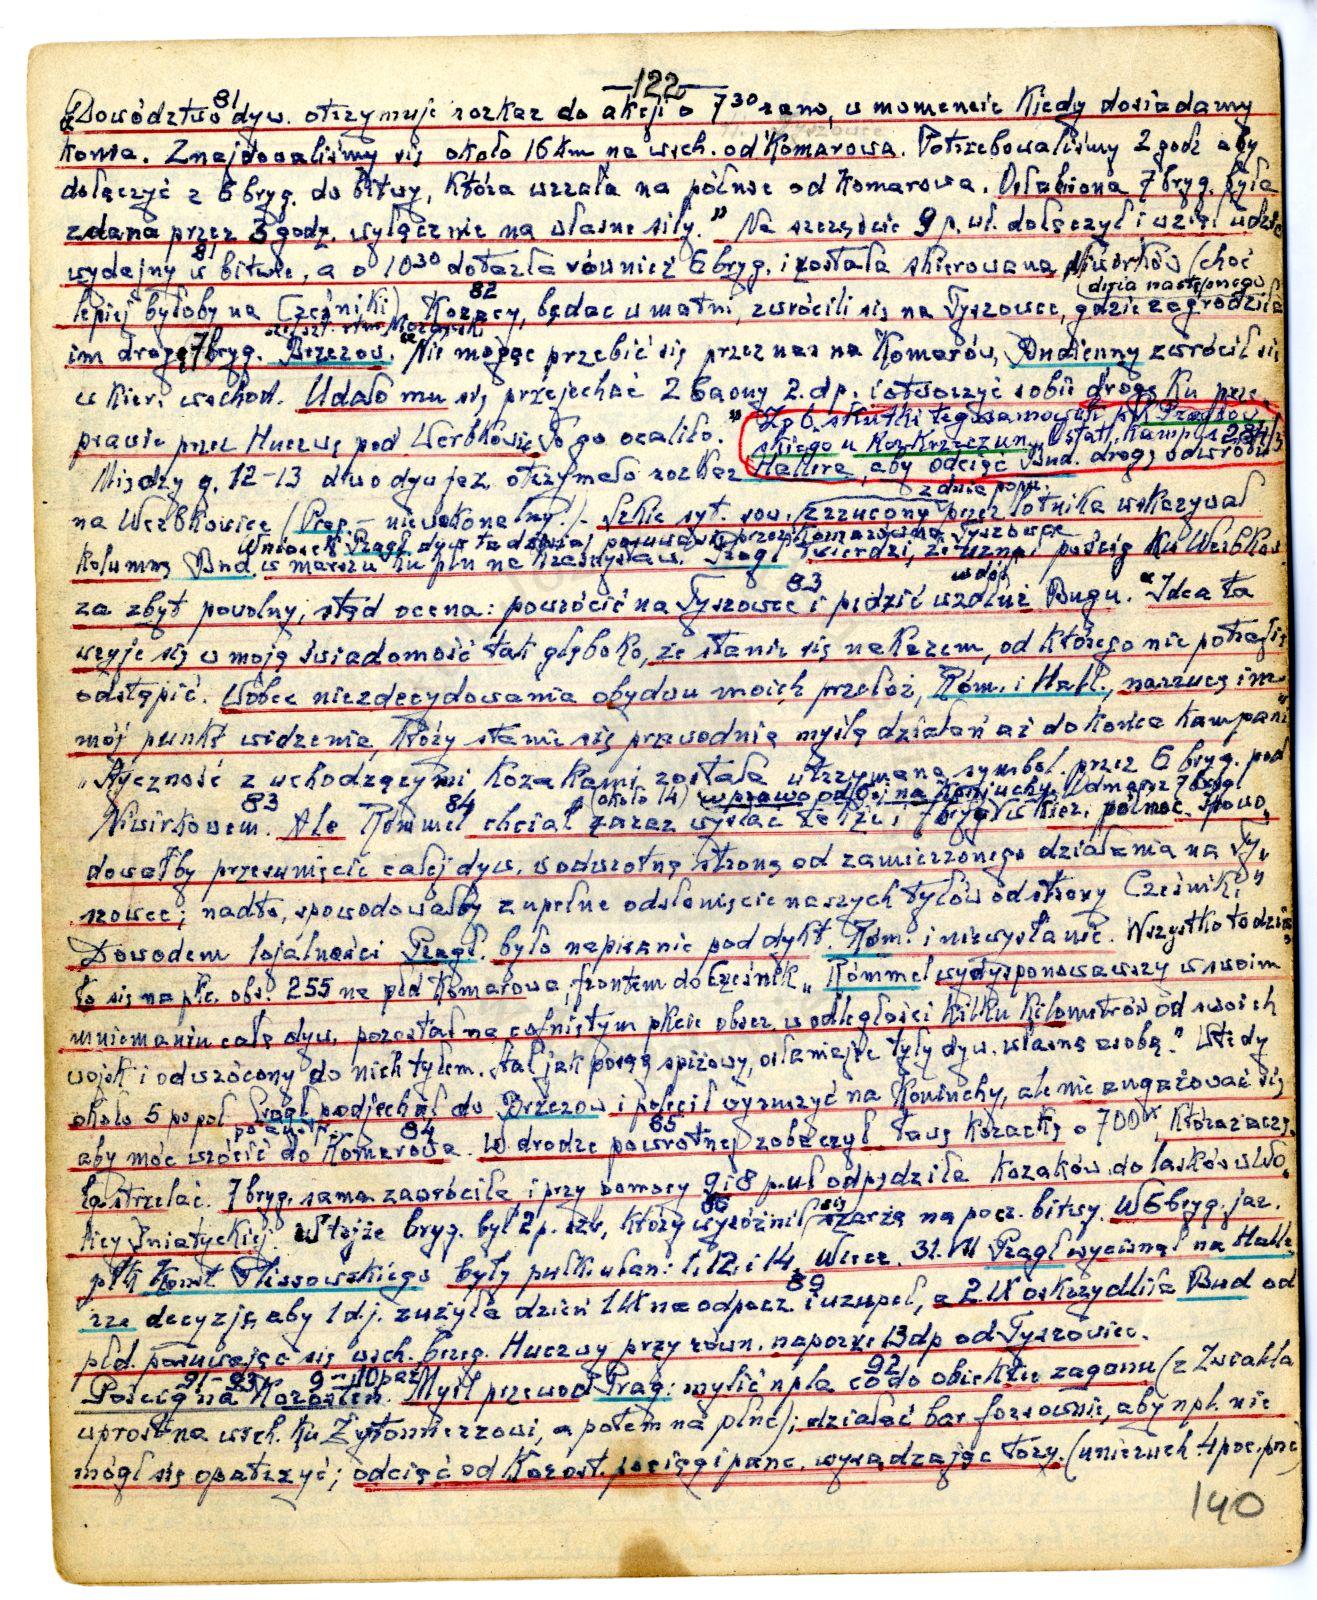 —122—
81
"Dowództwo dyw. otrzymuje rozkaz do akcji o 7³⁰ rano, w momencie kiedy dosiadamy
konia. Znajdowaliśmy się około 16 km na wsch. od Komarowa. Potrzebowaliśmy 2 godz aby
dołączyć z 6 bryg. do bitwy, która wrzała na północ od Komarowa. Osłabiona 7 bryg. była
zdana przez 3 godz. wyłącznie na własne siły." Na szczęście 9 p. uł. dołączył i wziął udział
81
wydajny w bitwie, a o 10³⁰ dotarła również 6 bryg. i została skierowana Niwirków (choć
82 dnia następnego
lepiej byłoby na Cześniki) Kozacy, będąc w matni, zwrócili się na Tyszowce, gdzie zagrodziła
im drogę 7 bryg. Brzezow. Nie mogąc przebić się przez nas na Komarów, Budienny zwrócił się
w kier. wschod. Udało mu się przejechać 2 baony 2. dp. i otworzyć sobie drogę ku
prawie przez Huczwę pod Werbkowice to go ocaliło."
Zp 6. skutki tego samowoli płk
skiego u Korkrzeczun.
Hallera, aby odciąć Bud. drogę odwrotu
Między g. 12-13 dwodywjaz. otrzymało rozkaz
z dnia popn.
na Werbkowice (Prag. - niewykonalny). Szkic syt. sow. zrzucony przez lotnika wskazywał
kolumnę Bud. w marszu ku płn na Krasnystaw. Pragł twierdzi, że uzna. pościg ku Werbkow.
83 wdół
za zbyt powolny, stąd ocena: powrócić na Tyszowce i pędzić wzdłuż Bugu. "Idea ta
wryje się w moją świadomość tak głęboko, że stanie się nakazem, od którego nie potrafię
odstąpić. Wobec niezdecydowania obydwu moich przełoż, Röm. i Hall., narzucę im
mój punkt widzenia, który stanie się przewodnią myślą działań aż do końca kampanii"
"Styczność z uchodzącymi Kozakami została utrzymana symbol. przez 6 bryg. pod
83 84 (około 14) w prawo od 6 bj na Koniuchy. Odmarsz 7 bryg
Niwirkowem. Ale Römmel chciał zaraz wysłać także i 7 bryg. w kier. północ. spowo
dowałby przesunięcie całej dyw. w odwrotną stronę od zamierzonego działania na Ty-
szowce; nadto, spowodowałby zupełne odsłonięcie naszych tyłów od strony Cześnik."
Dowodem lojalności Pragł. było napisanie pod dykt. Röm. i niewysłanie. Wszystko to dzia
ło się na pkc. obs. 255 na płd Komarowa, frontem do Cześnik. "Römmel wydysponowawszy w swoim
mniemaniu całą dyw, pozostał na cofniętym pkcie obser. w odległości kilku kilometrów od swoich
wojsk i odwrócony do nich tyłem. stał jak posąg spiżowy, osłaniając tyły dyw. własną osobą." Wtedy
około 5 po poł Pragł podjechał do Brzezow i polecił wyruszyć na Koniuchy, ale nie angażować się
84 85
aby móc wrócić do Komarowa. W drodze powrotnej zobaczył ławę kozacką o 700 x, która zaczę-
ła strzelać. 7 bryg. sama zawróciła i przy pomocy 9 i 8 p. uł odpędziła kozaków do lasków Wo
licy Śniatyckiej. W tejże bryg. był 2 p. szw, który wyróżnił się szarżą na pocz. bitwy. W 6 bryg. jaz.
płk Konst. Plissowskiego były pułki ułan: 1, 12, i 14. Wiecz. 31. VIII Pragł wycisnął na Halle-
89
rze decyzję aby 1 dj. zużyła dzień 1 IX na odpocz. i uzupeł, a 2. IX oskrzydliła Bud od
płd. posuwając się wsch. brzeg. Huczwy przy równ. naporze 13 dp od Tyszowiec.
91-93 9-10 paź 92
Pościg na Korosteń. Myśl przewod Prag: mylić npla co do obiektu zagonu (z Zwiahla
wprost na wsch. ku Żytomierzowi, a potem na płnc); działać bar forsownie, aby npl. nie
mógł się opatrzyć; odciąć od Korost. pociągi panc. wysadzając tory. (unieruch. 4 poc. panc)
140